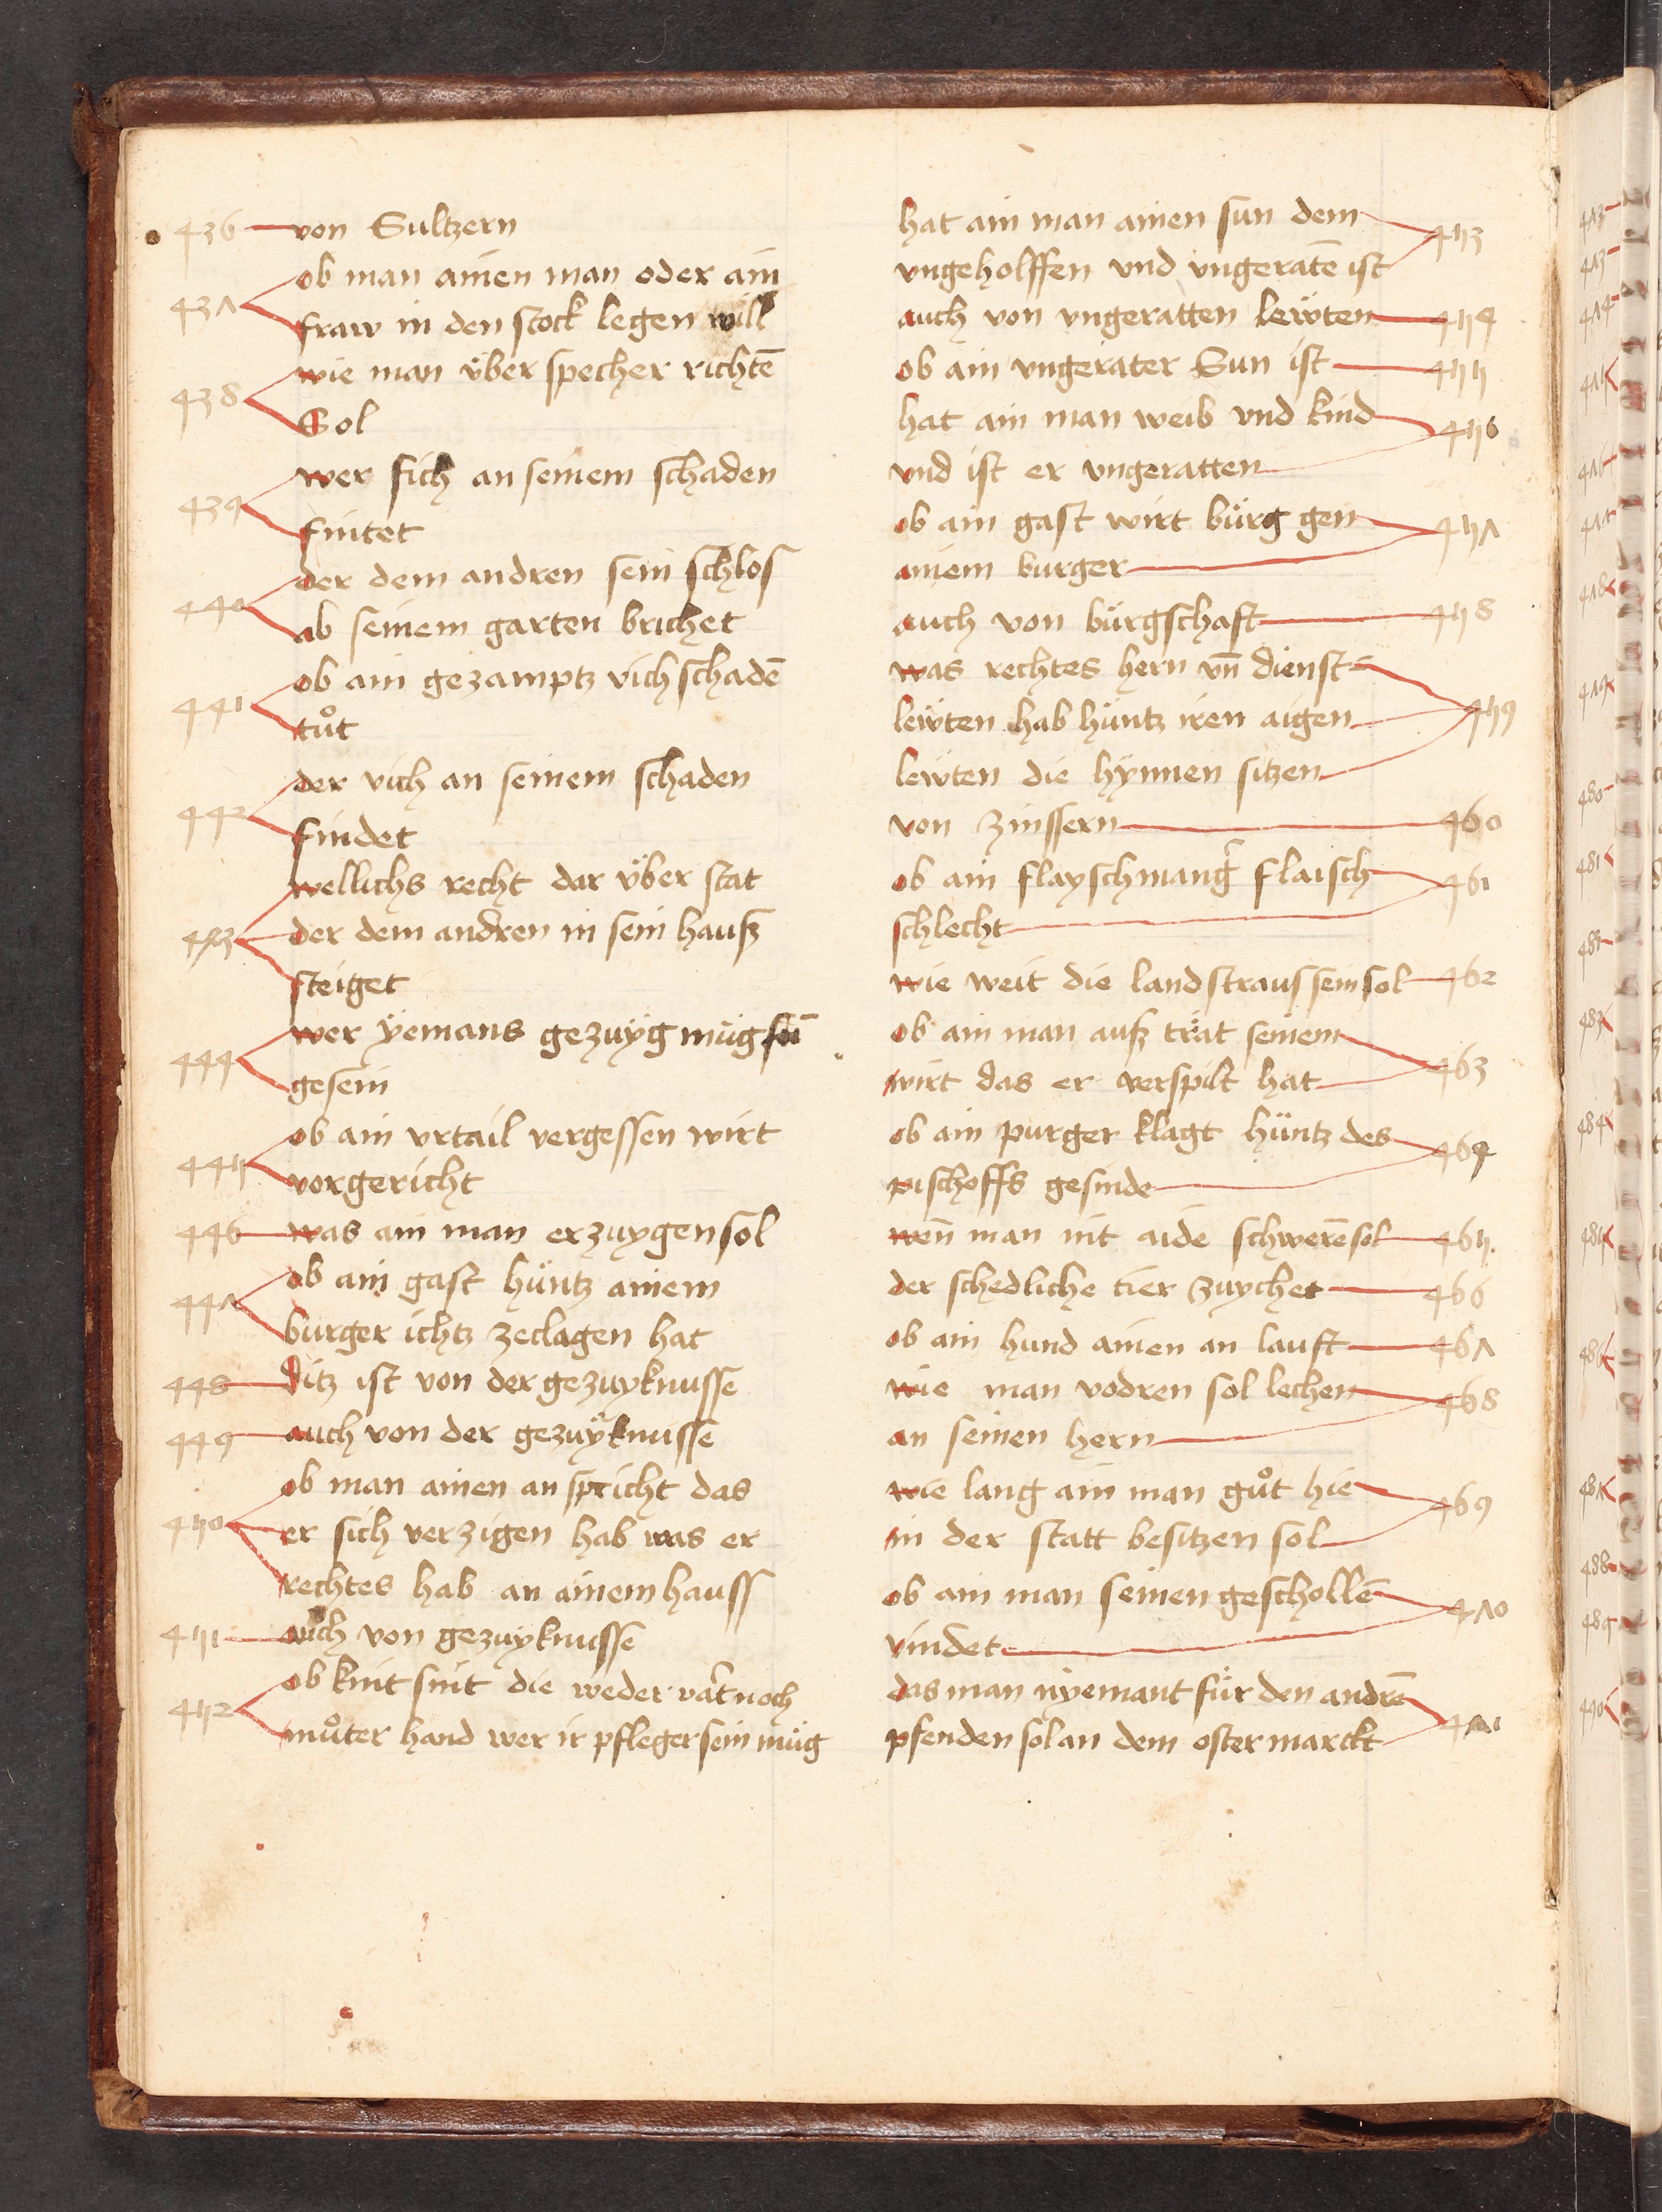 436 von Sultzern
437 ob man ainen man oder ain
fraw in den stock legen will
438 wie man über specher richtē
Sol
439 wer sich an seinem schaden
fintet
440 der dem andren sein schlos
ab seinem garten brichet
441 ob ain gezamptz vich schadē
tůt
442 der vich an seinem schaden
findet
wellichs recht dar über stat
443 der dem andren in sein hauß
steiget
444 wer yemans gezuyg müg
gesein
445 ob ain vrtail vergessen wirt
vorgericht
446 was ain man erzuygen sol
447 ob ain gast hüntz ainem
burger ichtz zeclagen hat
448 ditz ist von der gezuyknusse
449 auch von der gezuyknusse
ob man ainen an spricht das
450 er sich verzigen hab was er
rechtes hab an ainem hauss
451 auch von gezuyknusse
452 ob kint sint die weder vat̄ noch
můter hand wer ir pfleger sein müg
hat ain man ainen sun dem 453
vngeholffen vnd vngeratē ist
auch von vngeratten lewten 454
ob ain vngerater Sun ist 455
hat ain man weib vnd kind 456
vnd ist er vngeratten
ob ain gast wirt bürg gen 457
ainem burger
auch von bürgschaft 458
was rechtes hern vn̄ dienst
lewten hab hüntz iren aigen 459
lewten die hynnen sitzen
von zinssern 460
ob ain flayschmanger flaisch 461
schlecht
wie weit die landstraus sein sol 462
ob ain man auß trät seinem 463
wirt das er verspilt hat
ob ain purger klagt hüntz des 464
pischoffs gesinde
wen̄ man nit aide schwerē sol 465
der schedliche tier zuychet 466
ob ain hund ainen an lauft 467
wie man vodren sol lechen 468
an seinen hern
wie lang ain man gůt hie 469
in der statt besitzen sol
ob ain man seinen geschollē 470
vindet
das man nyemant für den andrē 471
pfenden sol an dem ostermarckt